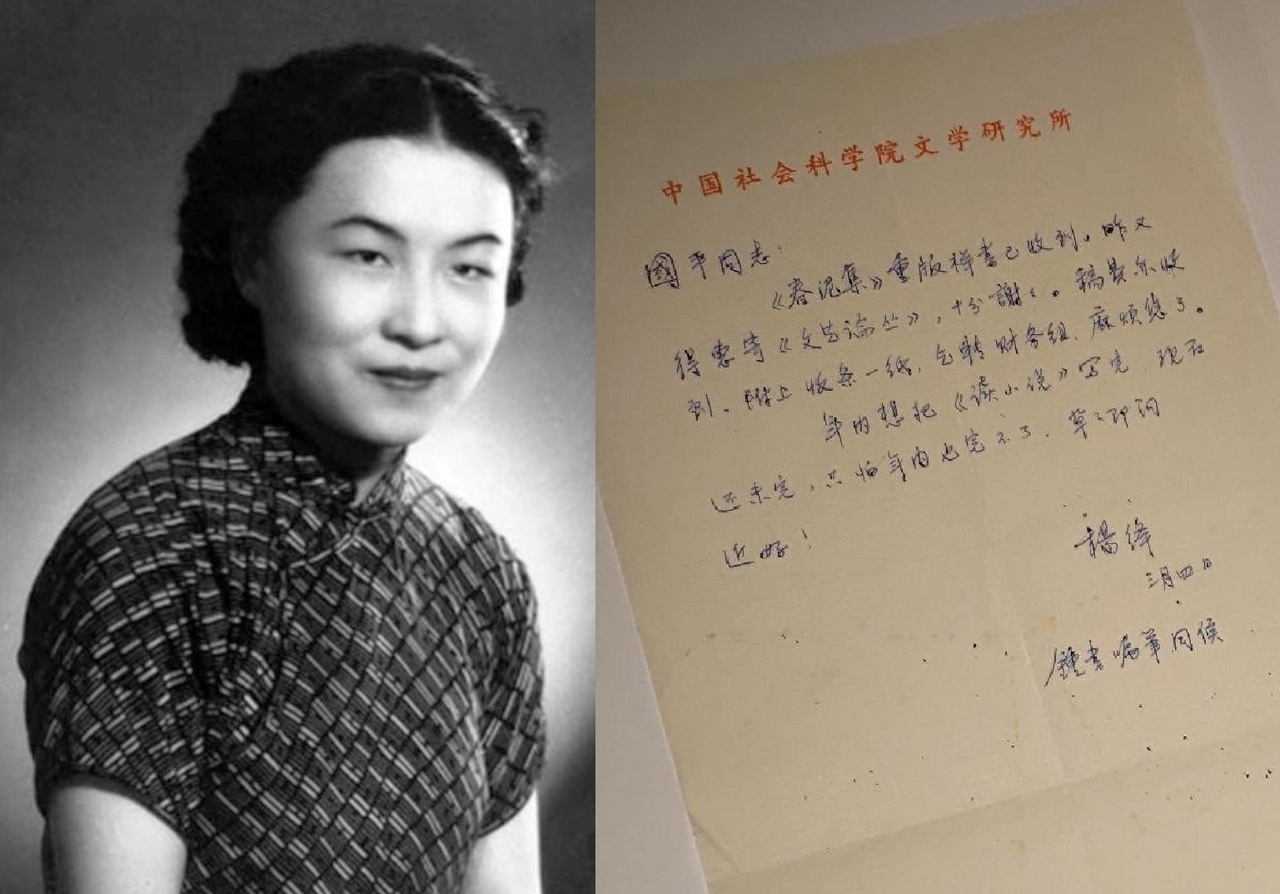 中国社会科学院文学研究所
國平同志：
《春泥集》重版样書已收到。昨又
得惠寄《文艺论丛》，十分謝〻。稿费亦收
到。附上收条一纸，乞转财务组，麻烦您了。
年内想把《读小说》写完，现在
还未完，只怕年内也完不了。草〻即问
近好！
楊绛
三月四日
鍾書嘱笔同候